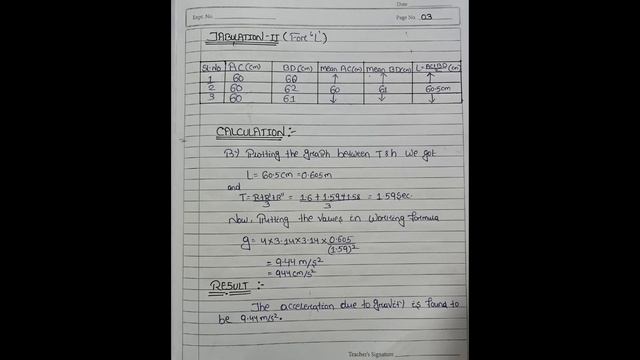 Date
Expt. No.
Page No. 03
TABULATION-II (For 'L')
Sl.No AC(cm) BD(cm) mean AC(cm) mean BD(cm) L = AC+BD/2 (cm)
1 60 60 ↑ ↑ ↑
2 60 62 60 61 60.5cm
3 60 61 ↓ ↓ ↓
CALCULATION:-
By Plotting the graph between T & h we got
L = 60.5cm = 0.605m
and
T = = 1.6+1.59+1.58/3 = 1.59 Sec.
Now, Putting the values in working formula
g = 4×3.14×3.14× 0.605/(1.59)²
= 9.44 m/s²
= 944 cm/s²
RESULT :-
The acceleration due to gravity is found to
be 9.44 m/s².
Teacher's Signature